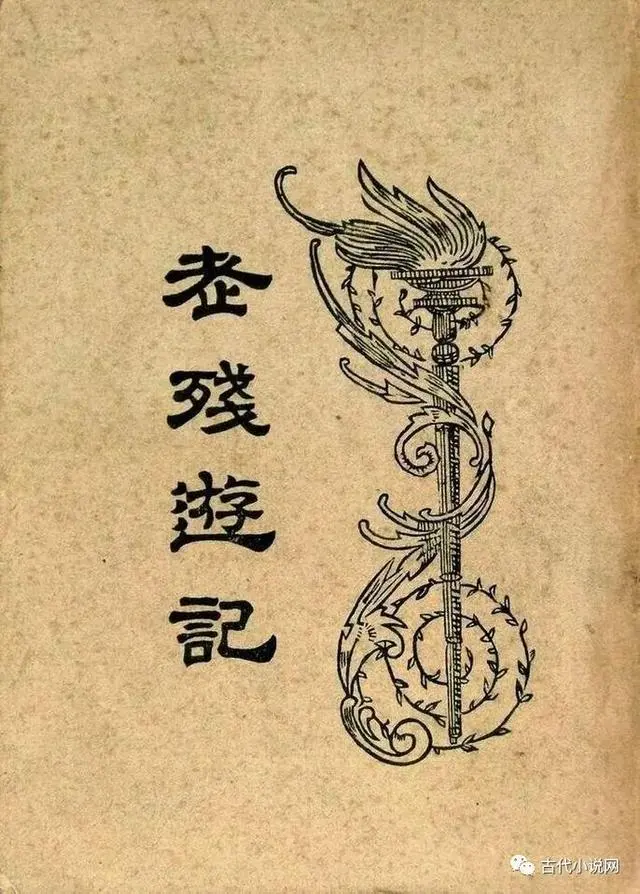 老殘遊記
古代小说网